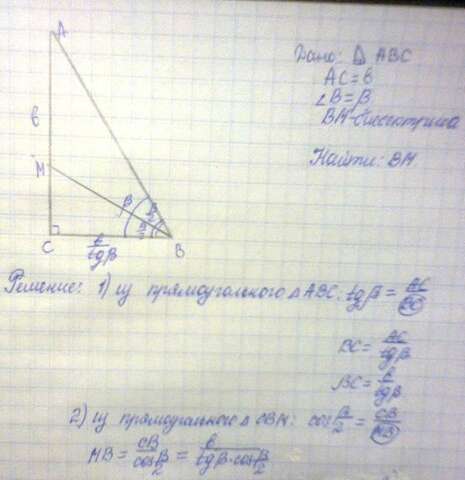 A
в
M
C
B
β
β/2
β/2
в/tgβ
Дано: Δ ABC
AC = в
∠B = β
BM - биссектриса
Найти: BM
Решение: 1) из прямоугольного Δ ABC: tgβ = AC/BC
BC = AC/tgβ
BC = в/tgβ
2) из прямоугольного Δ CBM: cos β/2 = CB/MB
MB = CB/cos β/2 = в/tgβ·cos β/2